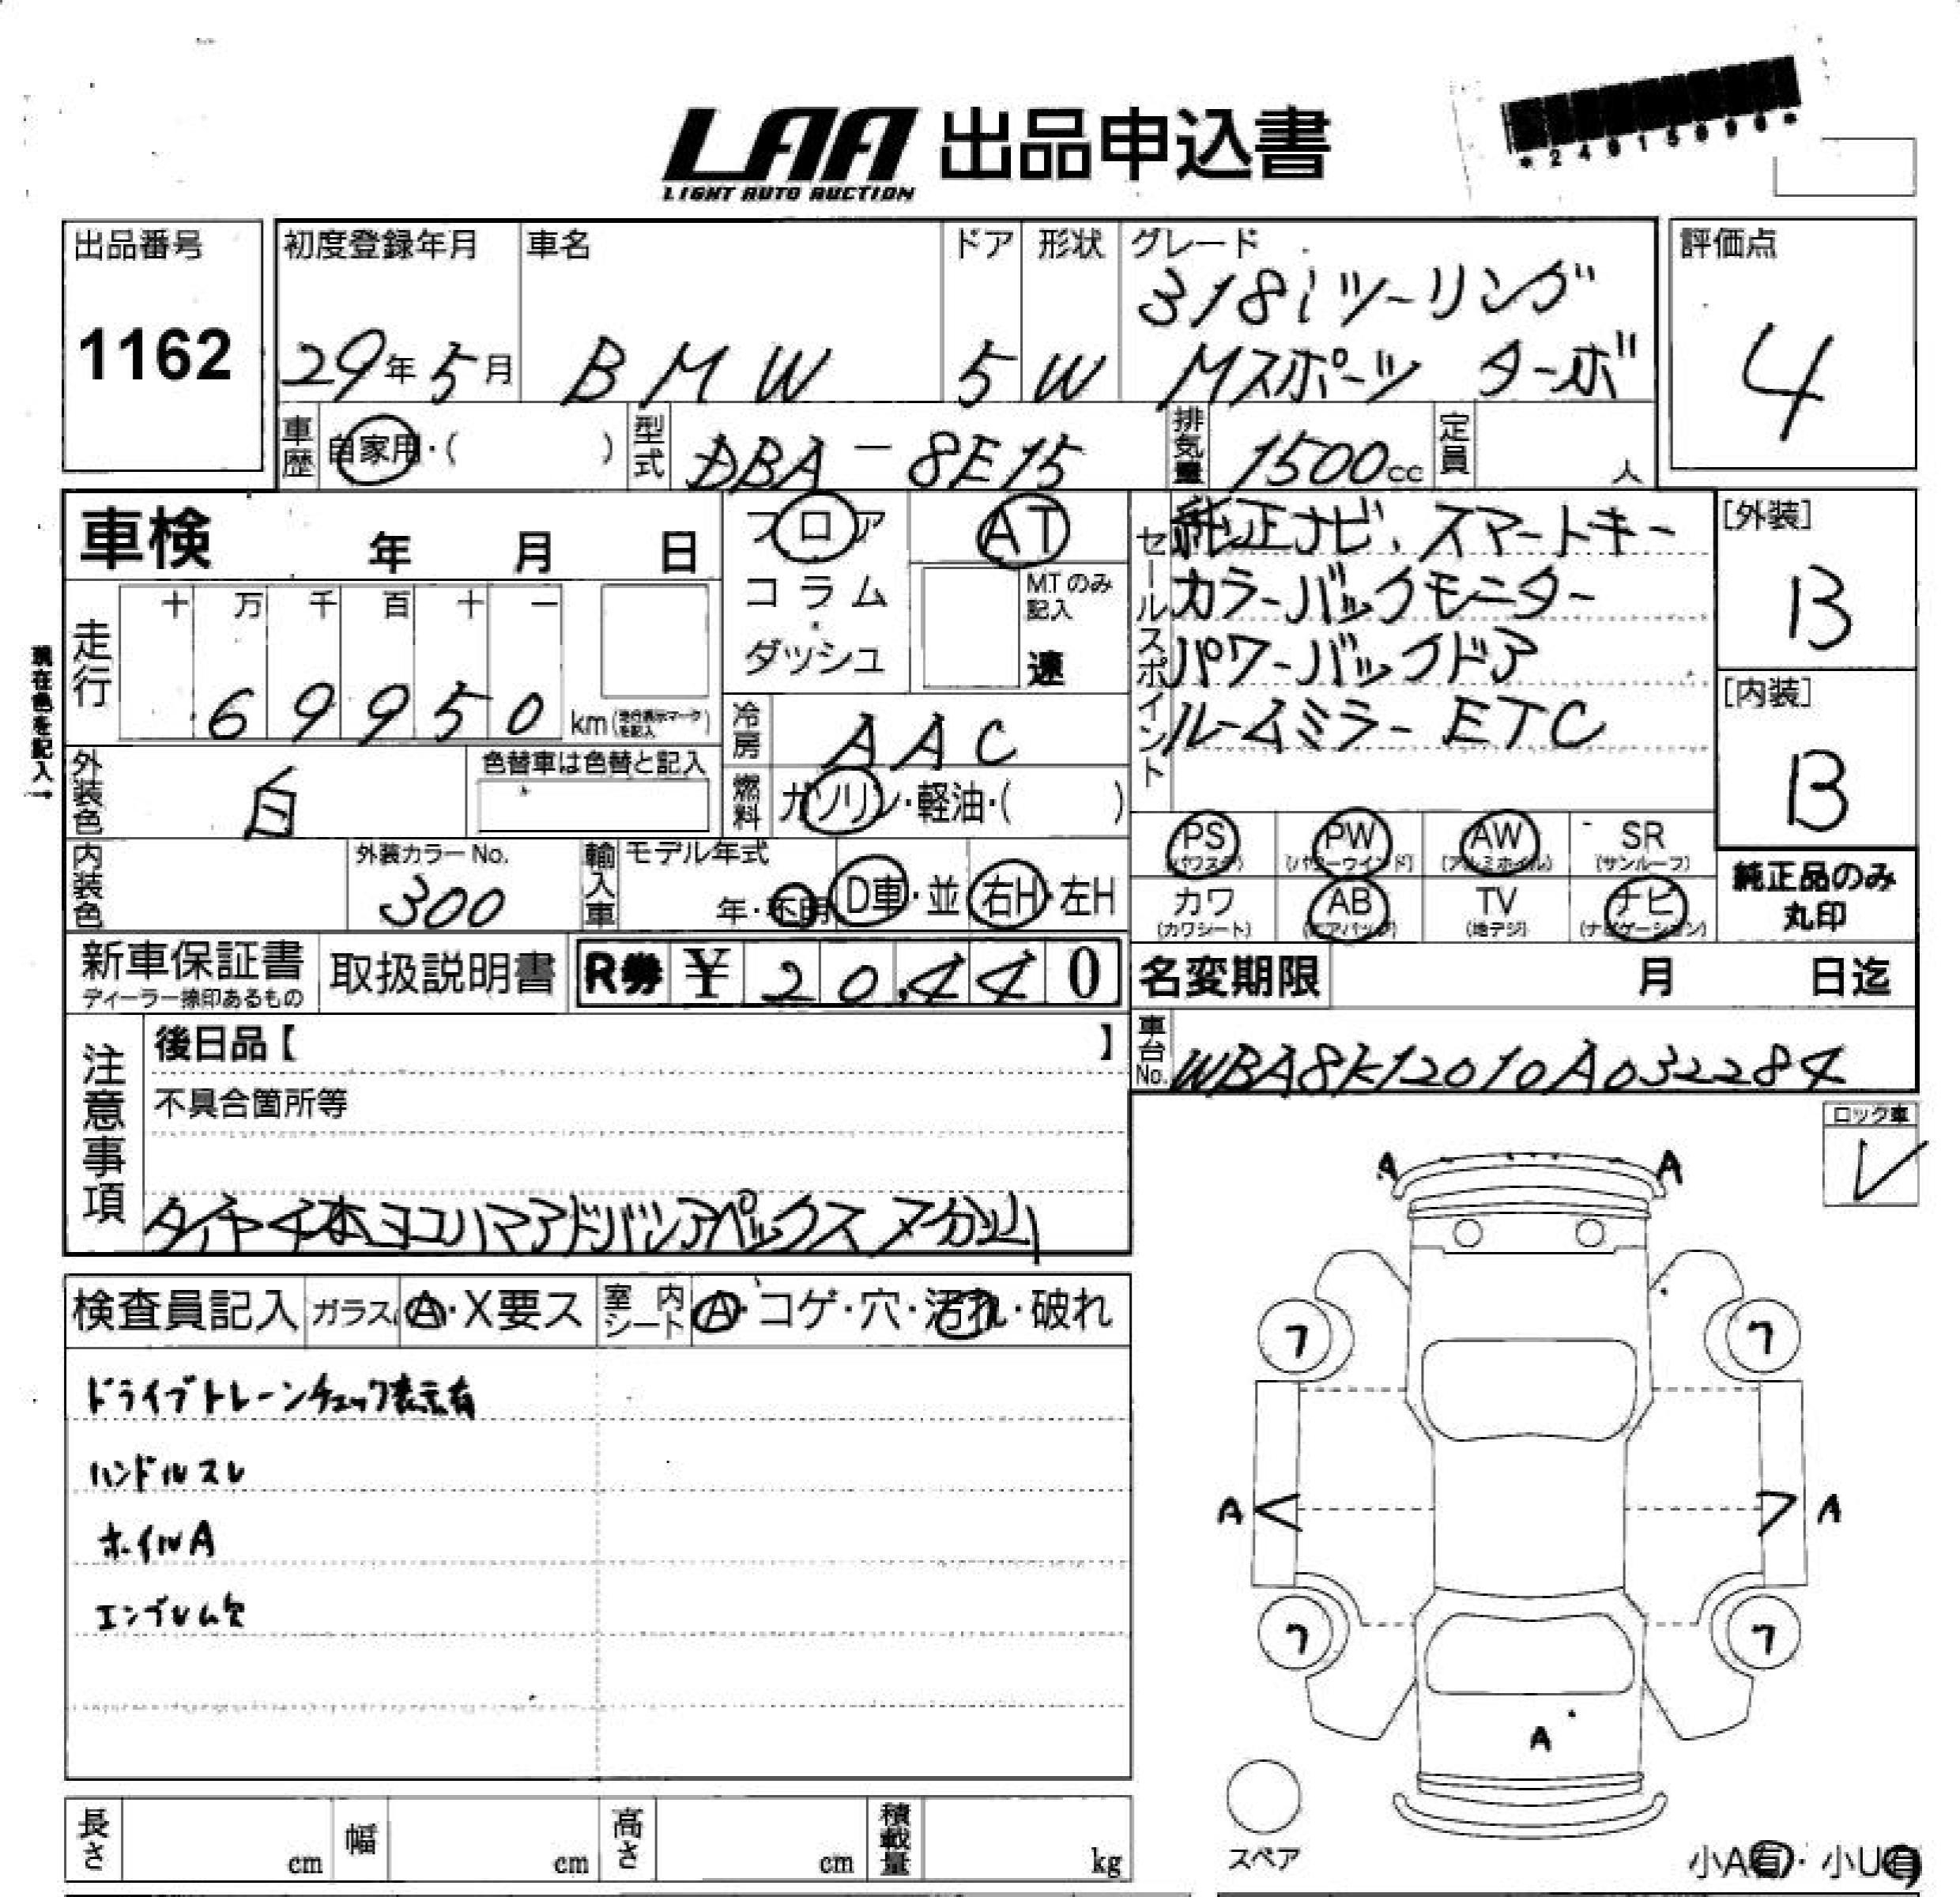 LAA 出品申込書
LIGHT AUTO AUCTION
出品番号
1162
初度登録年月
29年5月
車名
BMW
ドア
5
形状
W
グレード
318iツーリング
Mスポーツ ターボ
評価点
4
車歴 自家用・( )
型式 DBA-8E15
排気量 1500cc
定員 人
車検 年 月 日
フロア
コラム
ダッシュ
AT
M.Tのみ
記入
速
セールスポイント
純正ナビ、スマートキー
カラーバックモニター
パワーバックドア
ルームミラーETC
[外装]
B
[内装]
B
現在色を記入→
走行
十 万 千 百 十 一
69950 km
冷房 AAC
外装色 白
色替車は色替と記入
燃料 ガソリン・軽油・( )
内装色
外装カラーNo.
300
輸入車
モデル年式
年・不明
D車・並
右H・左H
PS PW AW SR
(パワステ) (パワーウインド) (アルミホイル) (サンルーフ)
カワ AB TV ナビ
(カワシート) (エアバッグ) (地デジ) (ナビゲーション)
純正品のみ
丸印
新車保証書
ディーラー捺印あるもの
取扱説明書
R券 ¥ 20,440
名変期限 月 日迄
車台No. WBA8K12010A032284
注意事項
後日品【 】
不具合箇所等
タイヤ4本ヨコハマアドバンアペックス7分山
ロック車
レ
検査員記入
ガラス A・X要ス
室内シート A・コゲ・穴・汚れ・破れ
ドライブトレーンチェック表示有
ハンドルスレ
ホイルA
エンブレム欠
A A
7 7
A A
7 7
A
スペア
小A有・小U有
長さ cm
幅 cm
高さ cm
積載量 kg